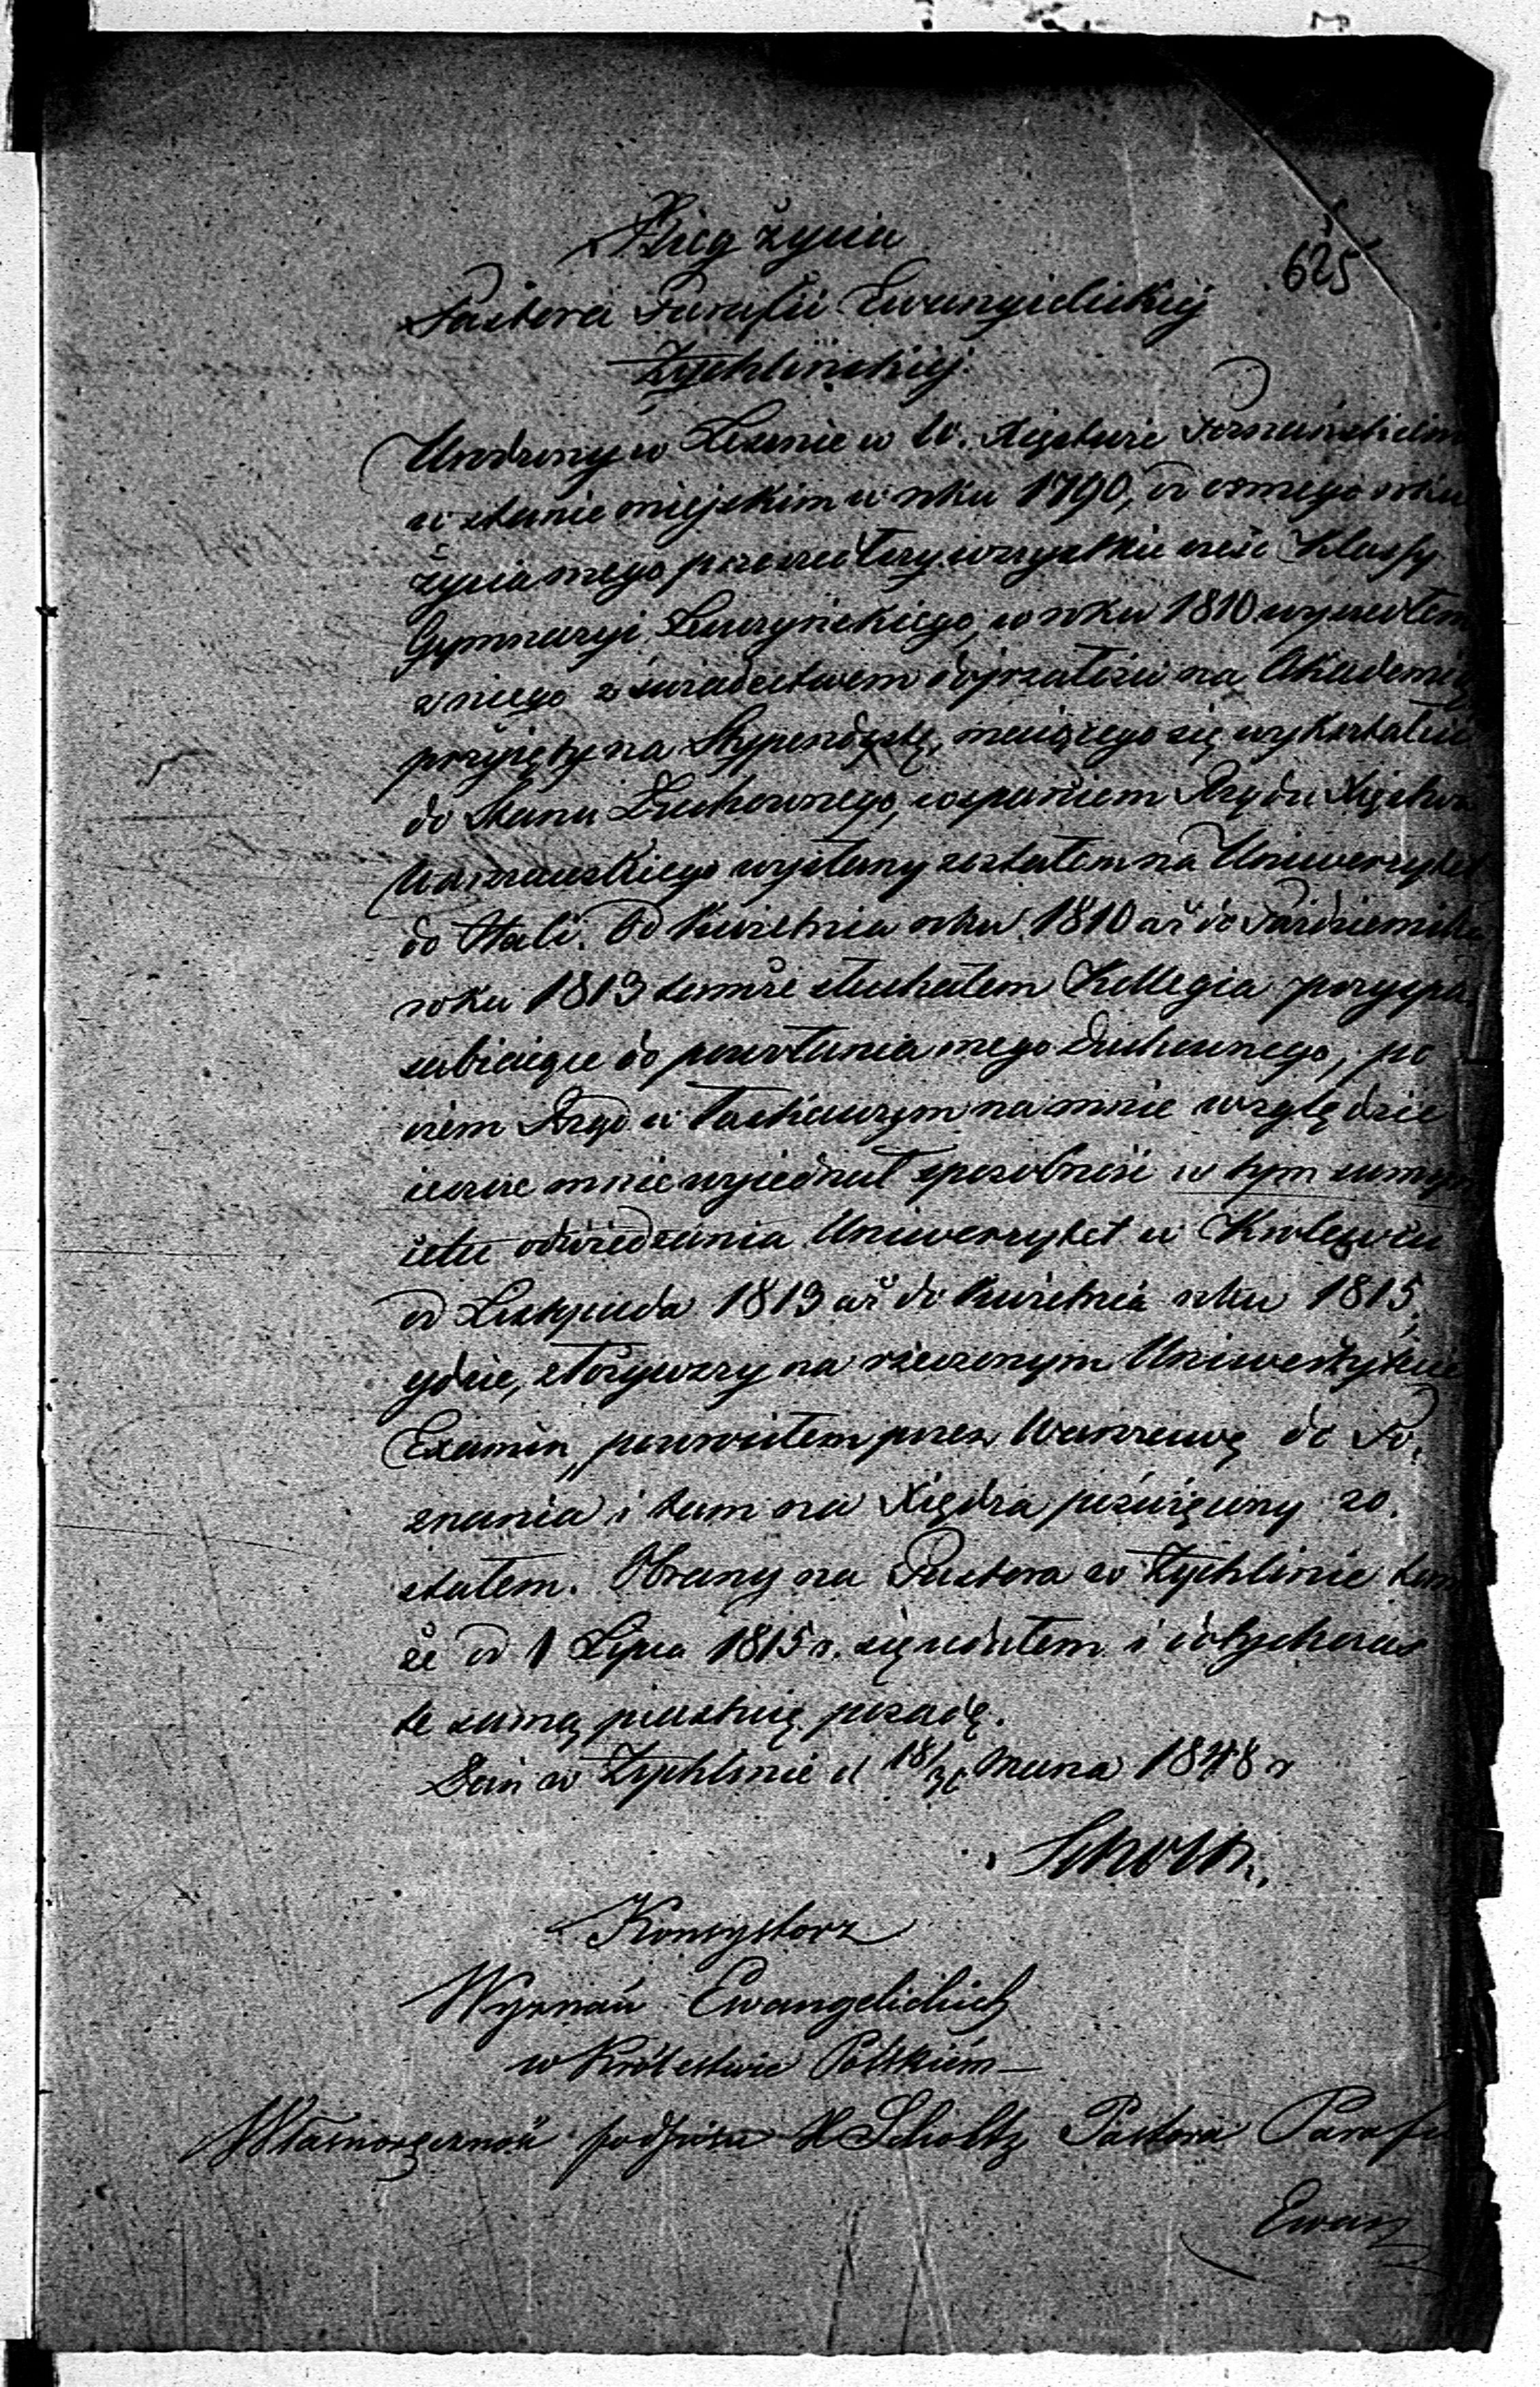 Bieg życia
625
Pastora Parafii Ewangielickiéj
Żychlińskiéj.
Urodzony w Lesznie w W. Xięstwie Poznańskiem
w stanie miejskim w roku 1790, od osmego roku
życia mego przeszedłszy wszystkie sześć Klassy
Gymnazyi Leszczyńskiego, w roku 1810 wyszedłem
z niego z świadectwem dojrzałości na Akademią
przyjęty na Stypendystę, maiącego się wykształcić
do Stanu Duchownego, wsparciem Rządu Xięstwa
Warszawskiego wysłany zostałem na Uniwersytet
do Halli. Od Kwietnia roku 1810 aż do Października
roku 1813 tamże słuchałem Kollegia przyspo
sabiaiące do powołania mego Duchownego, po
czem Rząd w łaskawym na mnie względzie
ieszcze mnie wyiednał sposobność w tym samym
celu odwiedzania Uniwersytet w Krolewcu
od Listopada 1813 aż do Kwietnia roku 1815,
gdzie, złożywszy na rzeczonym Uniwersytecie
Examin, powrociłem przez Warszawę do Po,
znania i tam na Xiędza poświęcony zo,
stałem. Obrany na Pastora w Żychlinie tam
że od 1 Lipca 1815 r. się udałem i dotychczas
tę samą piastuię posadę.
Dan w Żychlinie d 18/30 Marca 1848 r
Scholtz.
Konsystorz
Wyznań Ewangelickich
w Królestwie Polskiém
Własnoręczność podpisu X Scholtz Pastora Parafii
Ewan